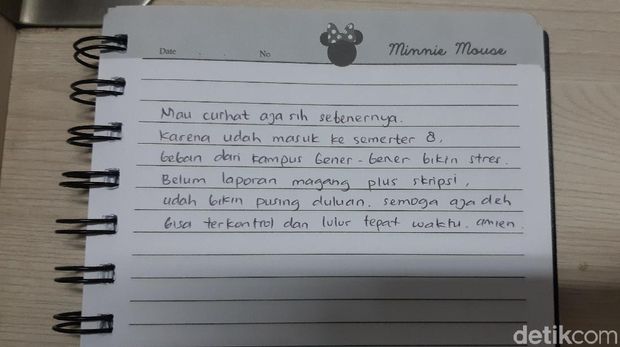 Date . . . No
Minnie Mouse
Mau curhat aja sih sebenernya.
Karena udah masuk ke semester 8,
beban dari kampus bener-bener bikin stres.
Belum laporan magang plus skripsi,
udah bikin pusing duluan. semoga aja deh
bisa terkontrol dan lulus tepat waktu. amien.
detikcom